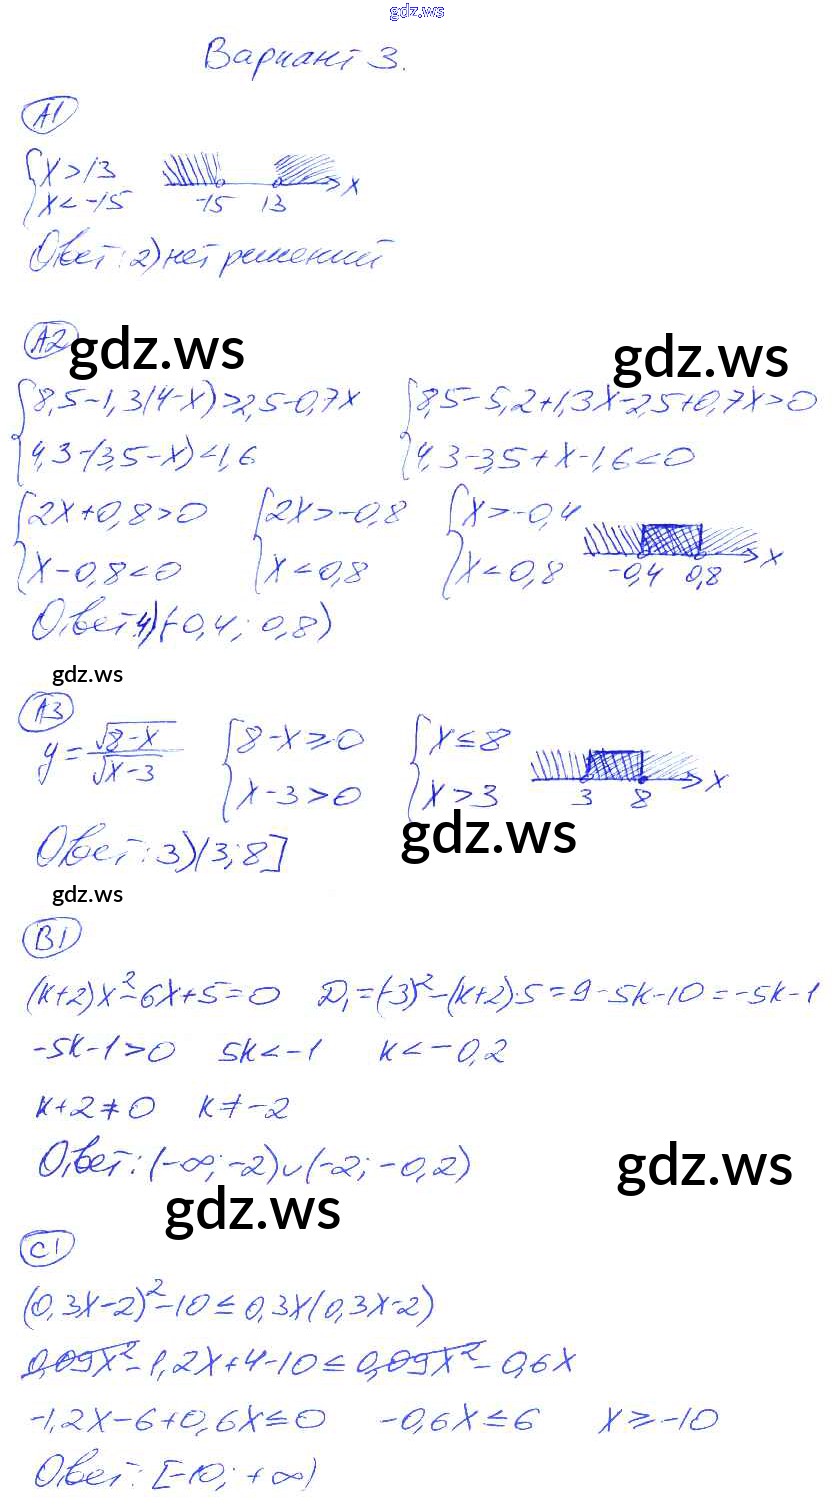 gdz.ws
Вариант 3.
А1
{x>13
x<-15
-15 13 x
Ответ: 2) нет решений
А2
gdz.ws
gdz.ws
{8,5-1,3(4-x)>2,5-0,7x {8,5-5,2+1,3x-2,5+0,7x>0
4,3-(3,5-x)<1,6 4,3-3,5+x-1,6<0
{2x+0,8>0 {2x>-0,8 {x>-0,4
x-0,8<0 x<0,8 x<0,8 -0,4 0,8 x
Ответ: 4) (-0,4; 0,8)
gdz.ws
А3
y=√8-x/√x-3 {8-x≥0 {x≤8
x-3>0 x>3 3 8 x
gdz.ws
Ответ: 3) (3; 8]
gdz.ws
В1
(k+2)x²-6x+5=0 D₁=(-3)²-(k+2)·5=9-5k-10=-5k-1
-5k-1>0 5k<-1 k<-0,2
k+2≠0 k≠-2
Ответ: (-∞; -2)∪(-2; -0,2)
gdz.ws
gdz.ws
С1
(0,3x-2)²-10≤0,3x(0,3x-2)
0,09x²-1,2x+4-10≤0,09x²-0,6x
-1,2x-6+0,6x≤0 -0,6x≤6 x≥-10
Ответ: [-10; +∞)